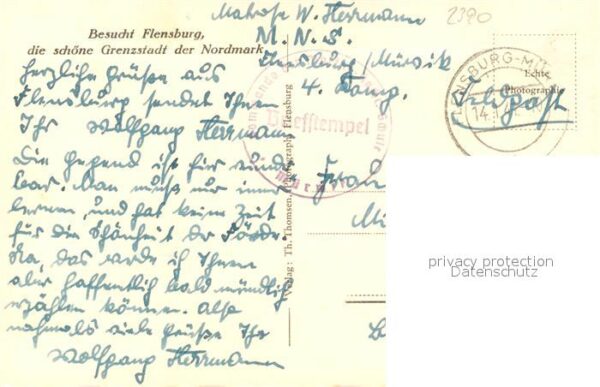 Besucht Flensburg,
die schöne Grenzstadt der Nordmark
Matrose W. Herrmann
M. N. S.
Flensburg/Mürwik
4. Komp.
2390
Echte
Photographie
Feldpost
Briefstempel
Herzliche Grüße aus
Flensburg sendet Ihnen
Ihr Wolfgang Herrmann
Die Gegend ist hier wunder-
bar. Man muß nur immer
lernen, und hat keine Zeit
für die Schönheit der Förde.
Na, das werde ich Ihnen
aber hoffentlich bald mündlich
erzählen können. Also
nochmals viele Grüße Ihr
Wolfgang Herrmann
Verlag: Th. Thomsen, Photograph, Flensburg
privacy protection
Datenschutz